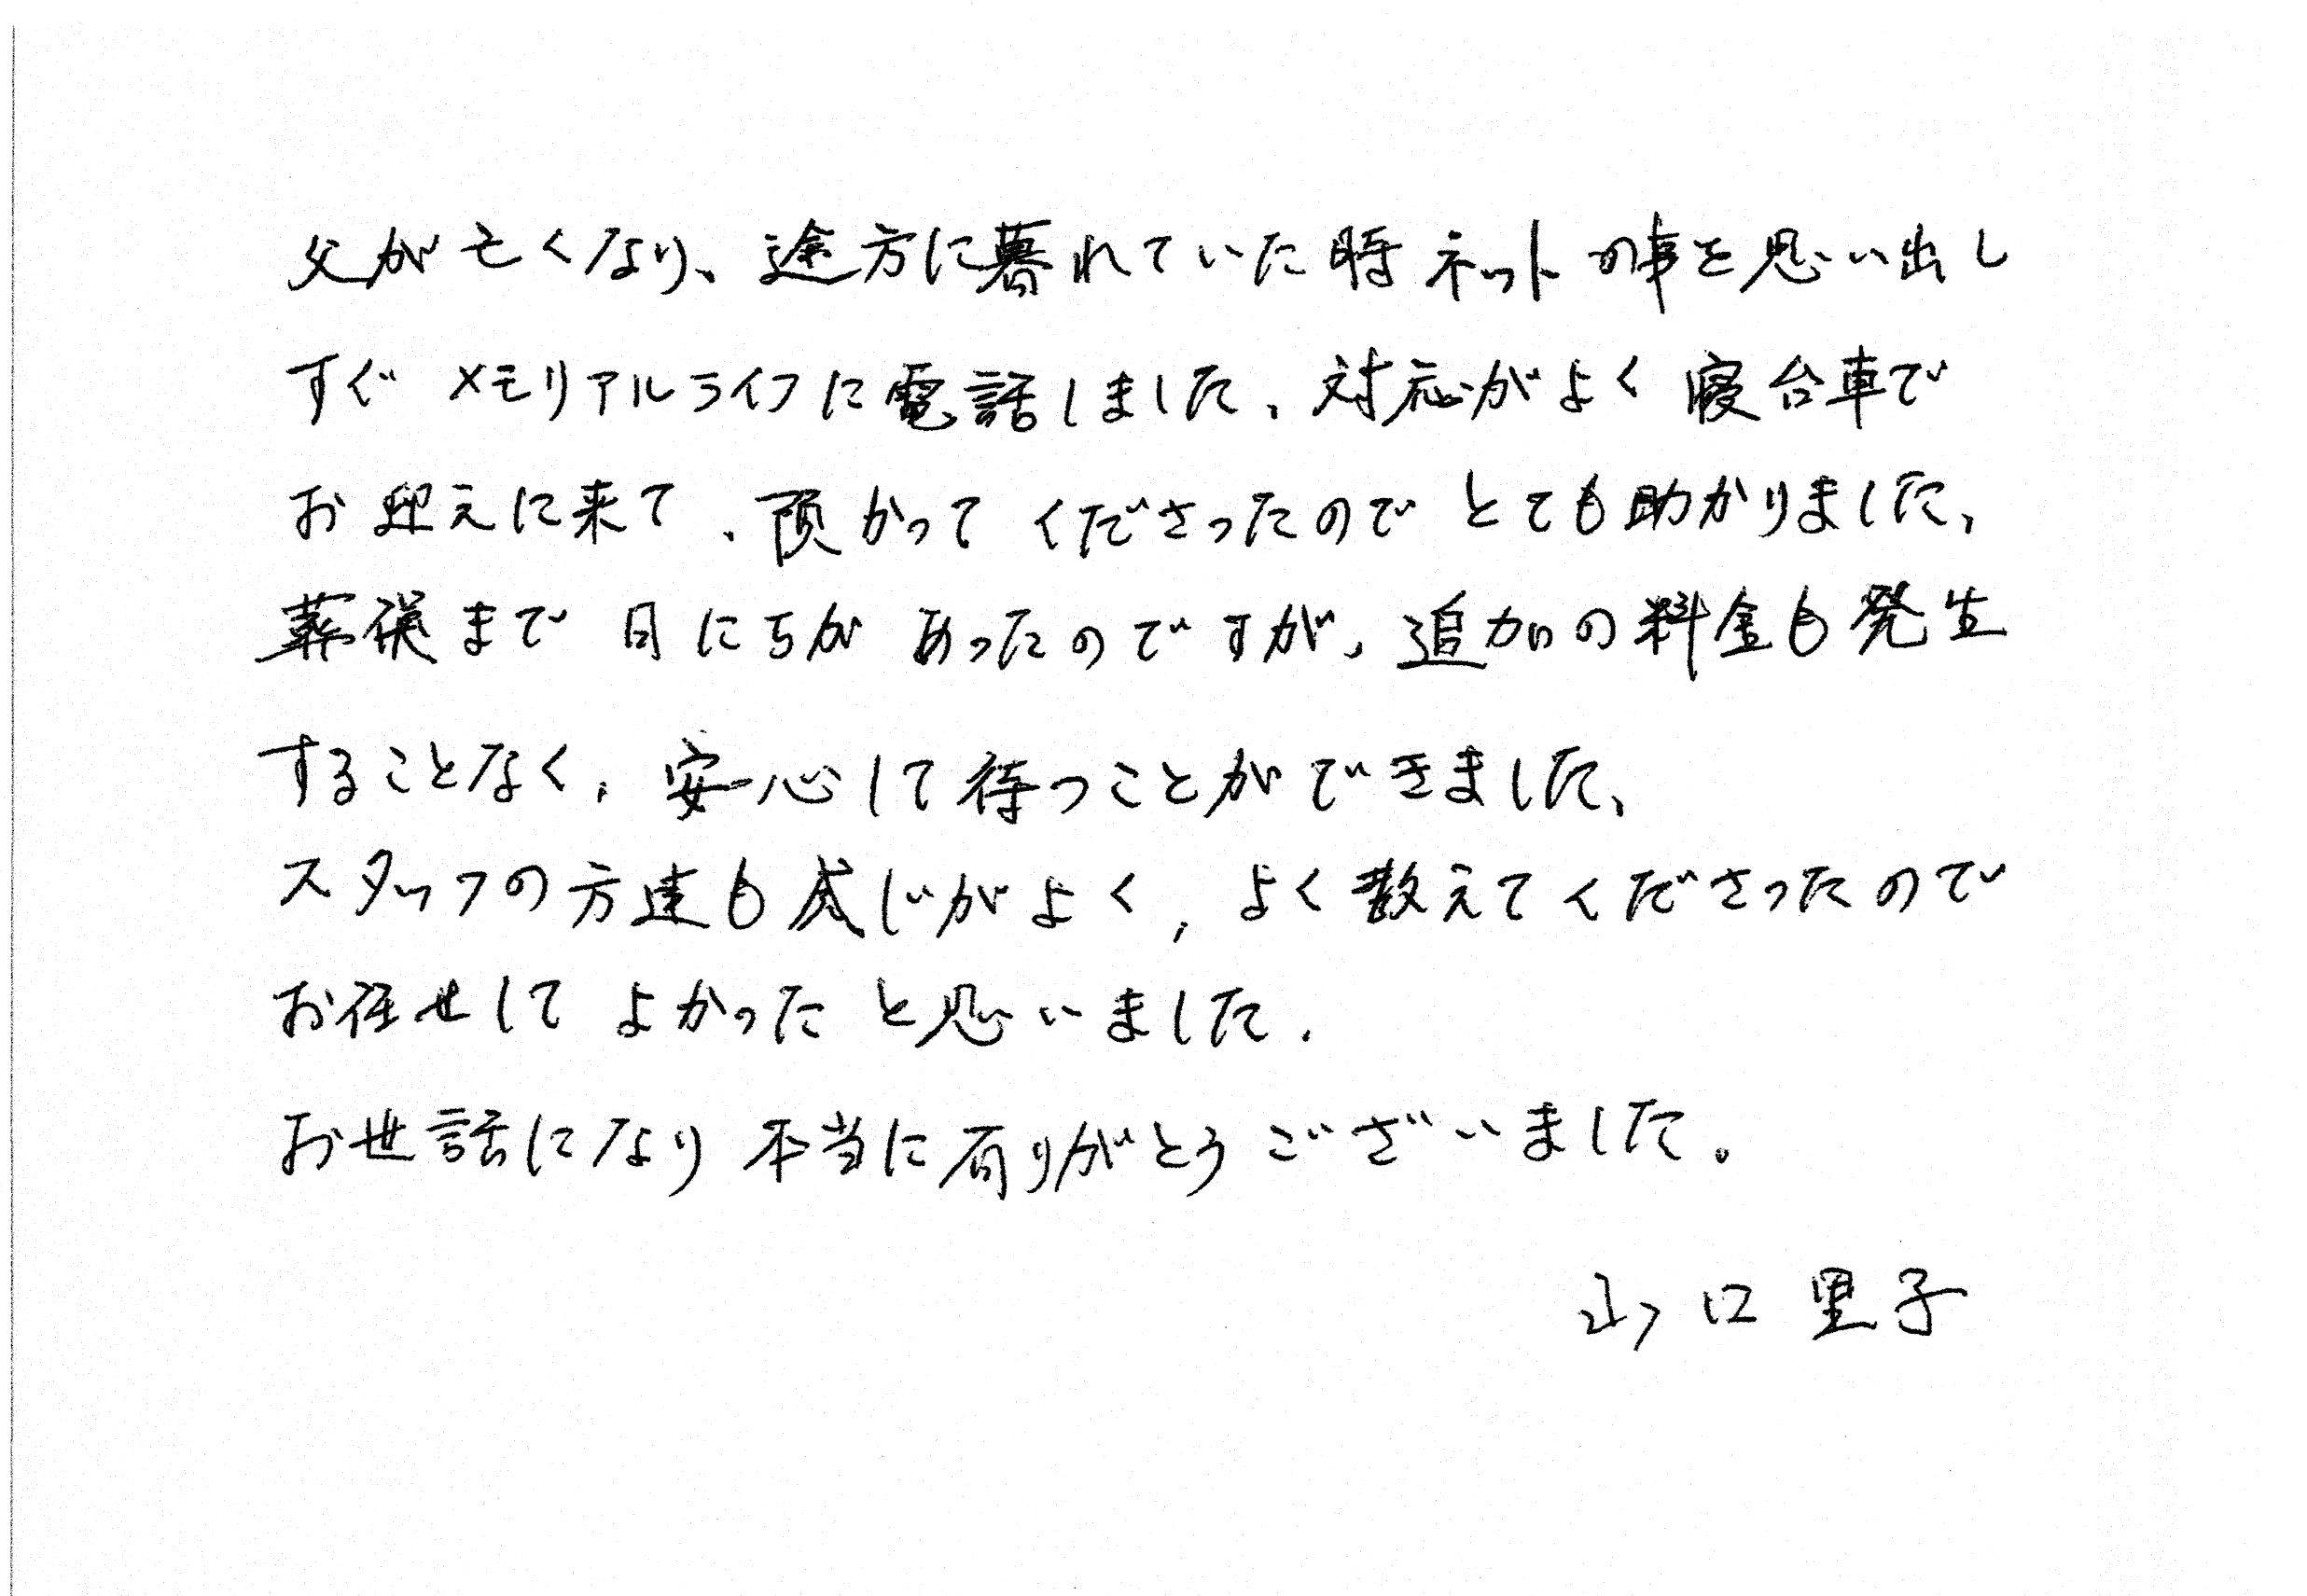 父が亡くなり、途方に暮れていた時 ネットの事を思い出し
すぐ メモリアルライフに電話しました、対応がよく 寝台車で
お迎えに来て、預かって くださったので とても助かりました、
葬儀まで 日にちが あったのですが、追加の料金も発生
することなく、安心して待つことができました、
スタッフの方達も感じがよく、よく教えてくださったので
お任せして よかった と思いました.
お世話になり 本当に有りがとうございました。
山口 里子